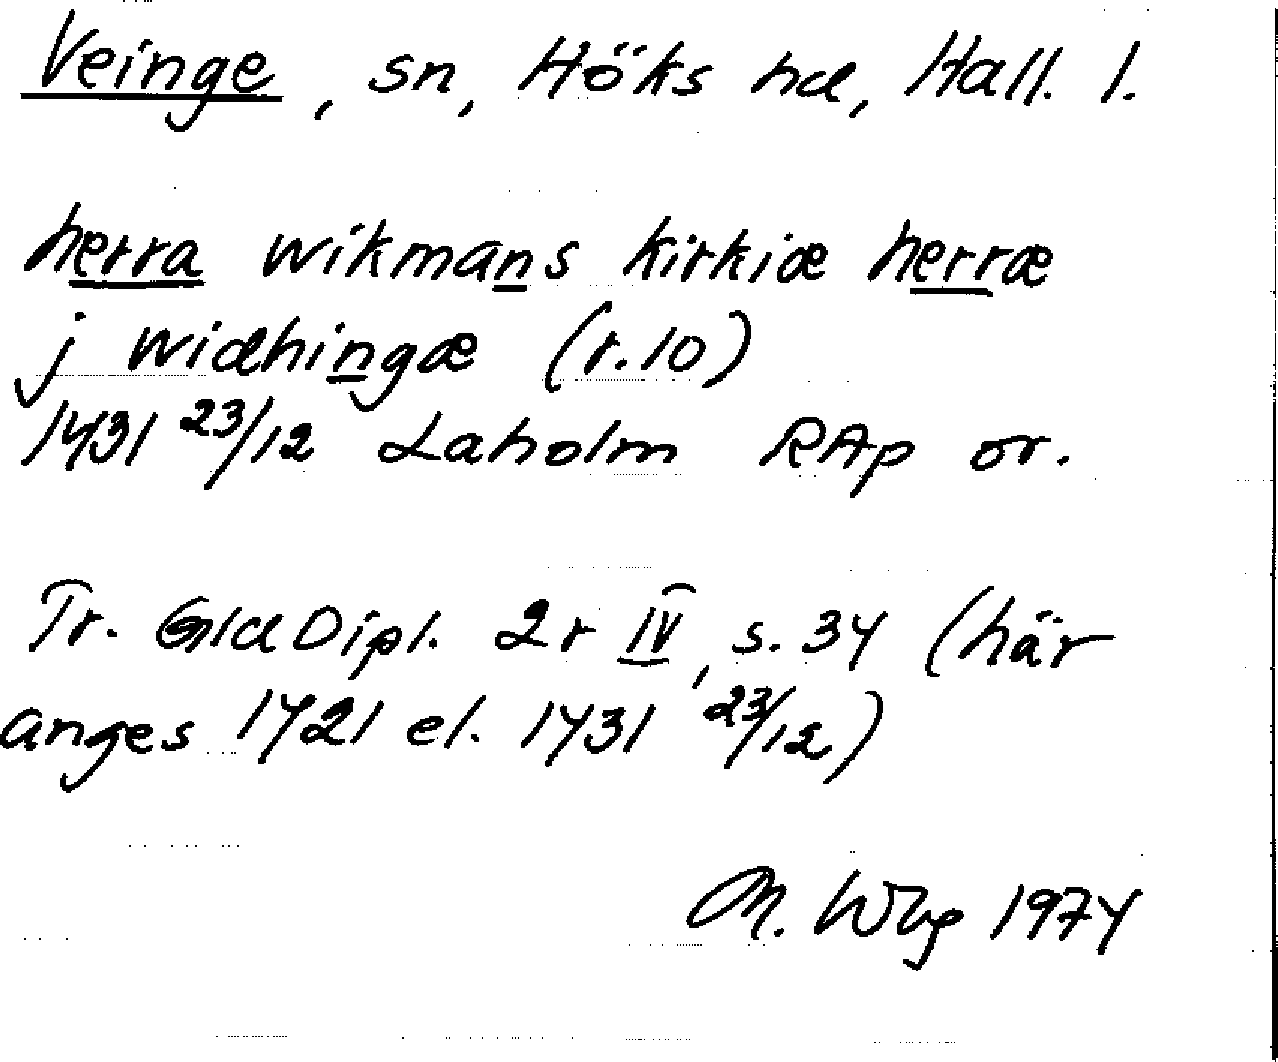 Veinge, sn, Höks hd, Hall. l.
herra wikmans kirkiæ herræ
j widhingæ (r. 10)
1431 23/12 Laholm RAp or.
Tr. GldDipl. 2r IV, s. 34 (här
anges 1421 el. 1431 23/12)
M. Wbg 1974